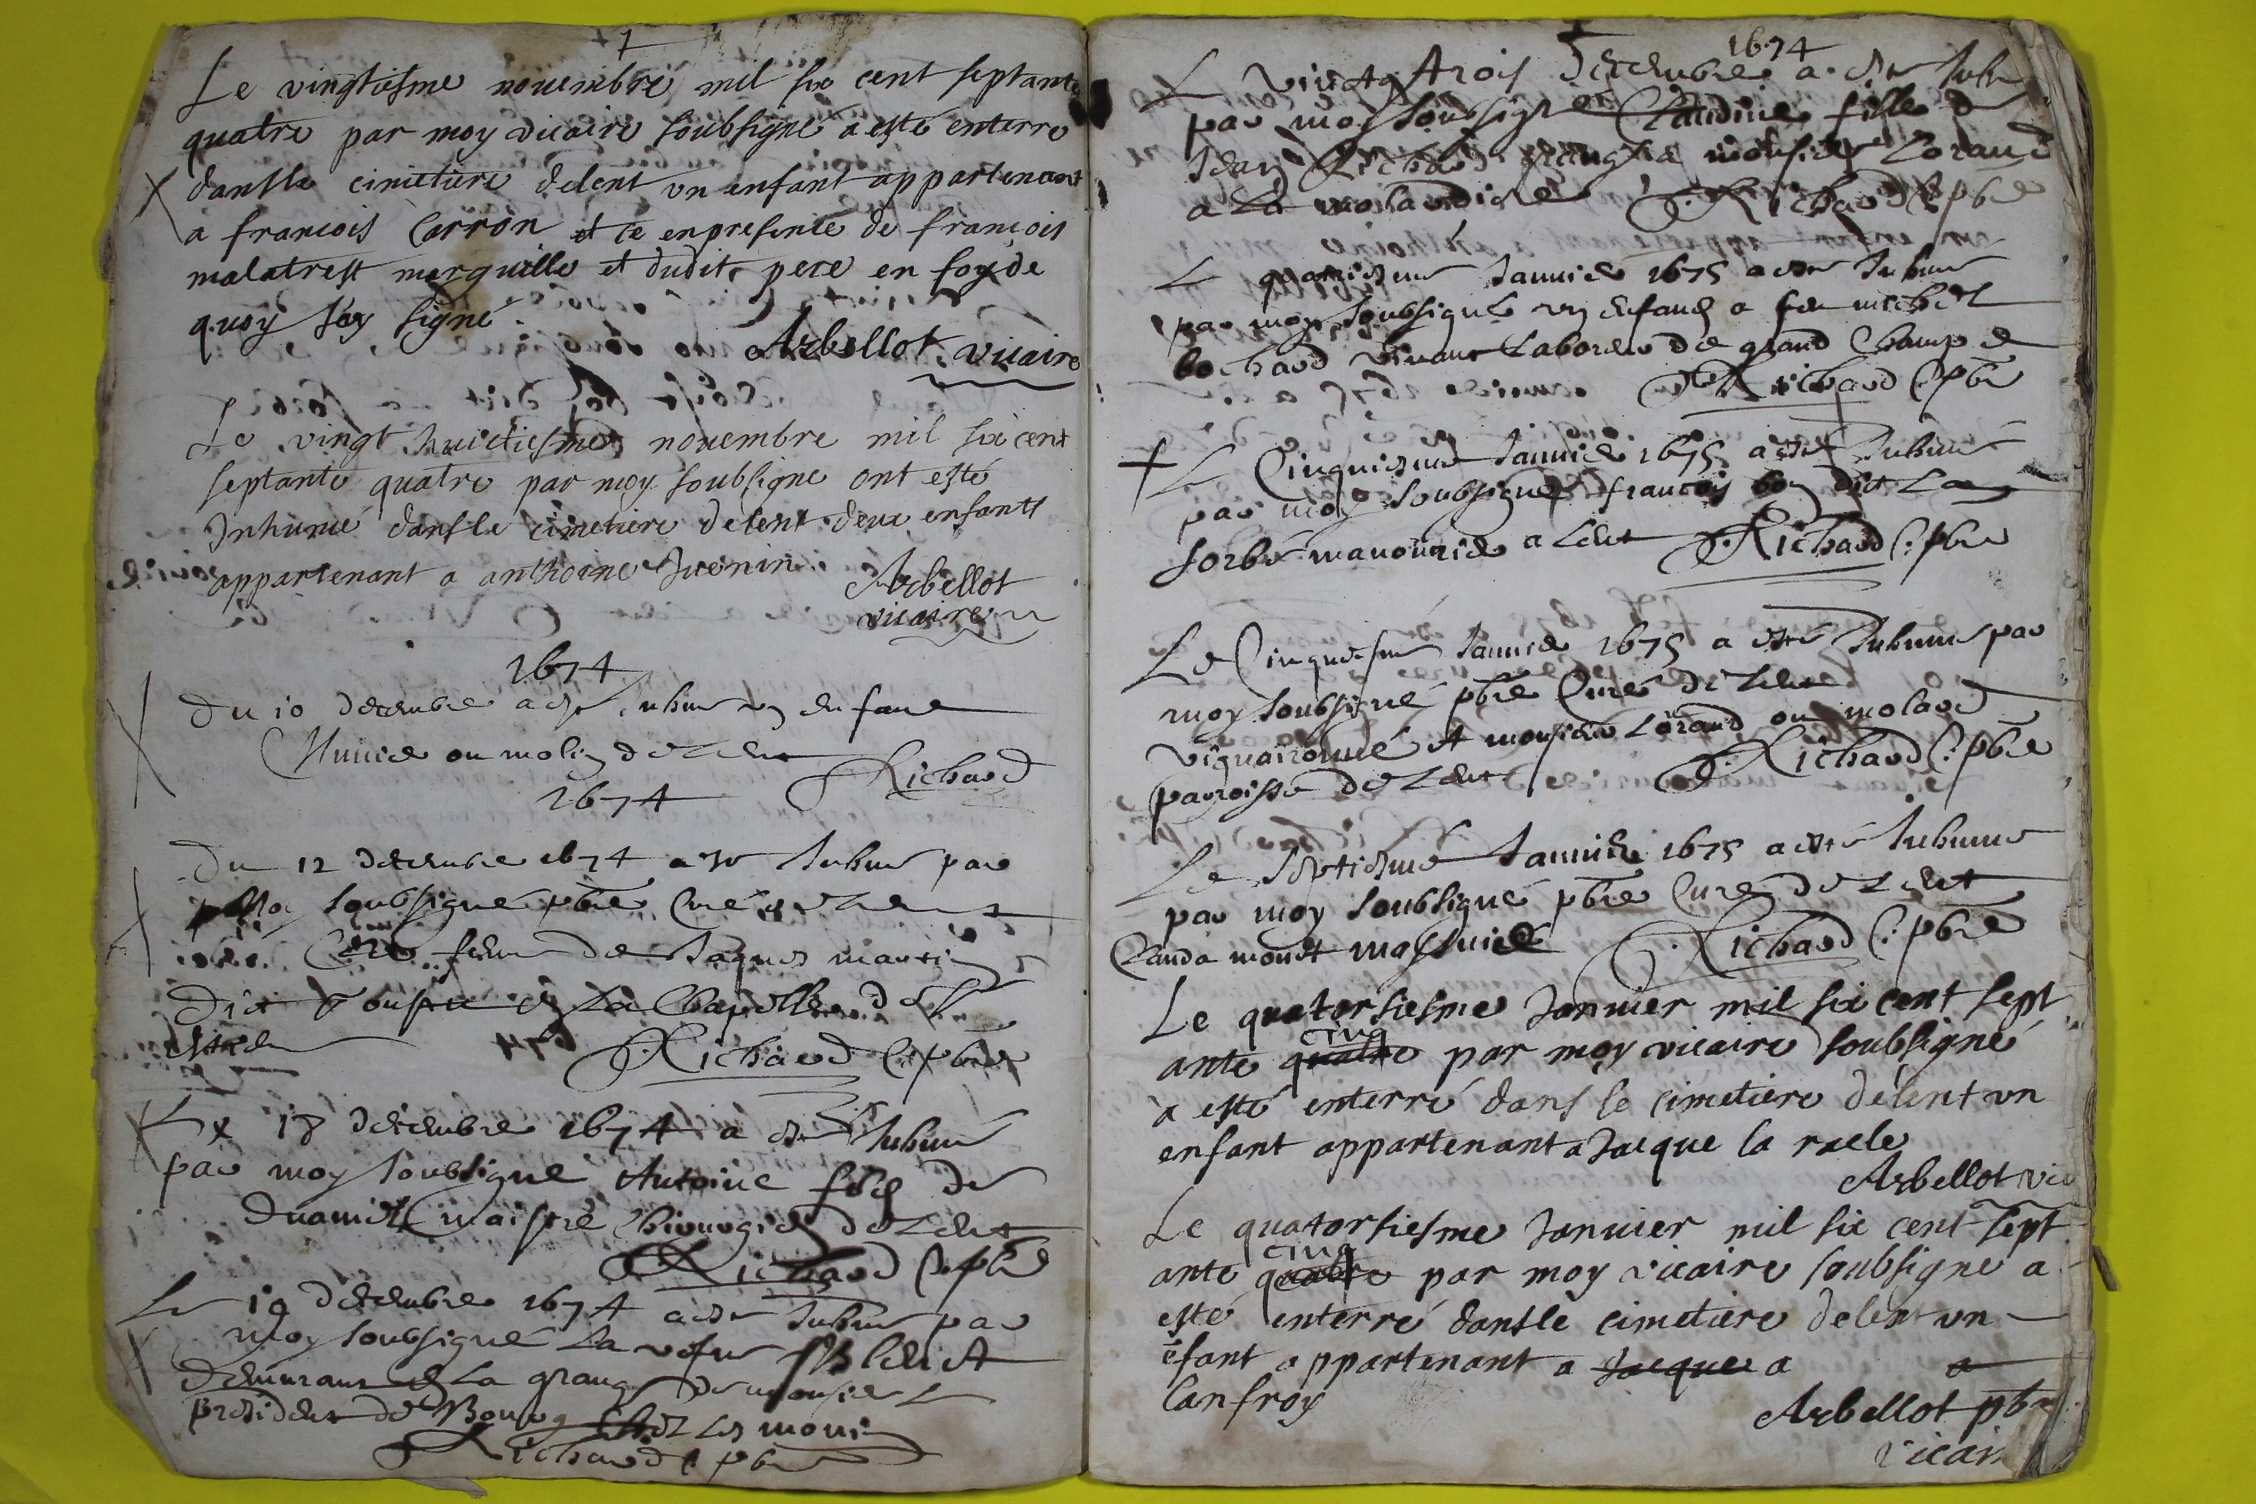 Le vingtiesme nouembre mil six cent septante
quatre par moy vicaire soubsigné a esté enterré
dansle cimetiere delent vn enfant appartenant
a francois Carron et ce enpresence de francois
malatrest marguille et dudit pere en foy de
quoy J'ay signé
Arbellot vicaire
Le vingt huictiesme nouembre mil six cent
septante quatre par moy soubsigne ont esté
Inhumé dansle cimetiere delent deux enfants
appartenant a anthoine Juenin
Arbellot
vicaire
1674
Du 10 decembre a este inhume vn enfant
Munier ou molin de Lent
Richard
1674
Du 12 decembre 1674 a este Inhume par
moy soubsigné pbre Curé de Lent
femme de Jaques martin
dict en La Chapelle de
Richard C. pbre
Le 18 decembre 1674 a esté Inhumé
par moy soubsigné Antoine filz de
maistre Chirurgien de Lent
Richard C. pbre
Le 19 decembre 1674 a este Inhume par
moy soubsigné La vefue
demeurant a La grange de monsieur Le
president de Bourg
Richard C. pbre
1674
Le Vingt trois decembre a este Inhume
par moy soubsigné Claudine fille de
Jean Richard granger a monsieur Lorand
a La
J. Richard C. pbre
Le Januier 1675 a este Inhume
par moy soubsigné vn enfand a feu michel
bochard viuant Laboreur de grand Champ
J. Richard C. pbre
Le Cinquiesme Januier 1675 a esté Inhumé
par moy soubsigné francois bon dict La
sorbé manouurier a Lent J. Richard C. pbre
Le Cinquiesme Januier 1675 a esté Inhume par
moy soubsigné pbre Curé de Lent
monsieur Lorand ou molard
parroisse de Lent J. Richard C. pbre
Le septiesme Januier 1675 a esté Inhume
par moy soubsigné pbre Curé de Lent
Clauda monet J. Richard C. pbre
Le quatorsiesme Januier mil six cent sept
cinq
ante quatre par moy vicaire soubsigné
a esté enterré dans le cimetiere delent vn
enfant appartenant a Jacque la racle
Arbellot vic
Le quatorsiesme Januier mil six cent sept
cinq
ante quatre par moy vicaire soubsigne a
esté enterré dansle cimetiere delent vn
ēfant appartenant a Jacque a a
Canfroy
Arbellot pbr
vicair